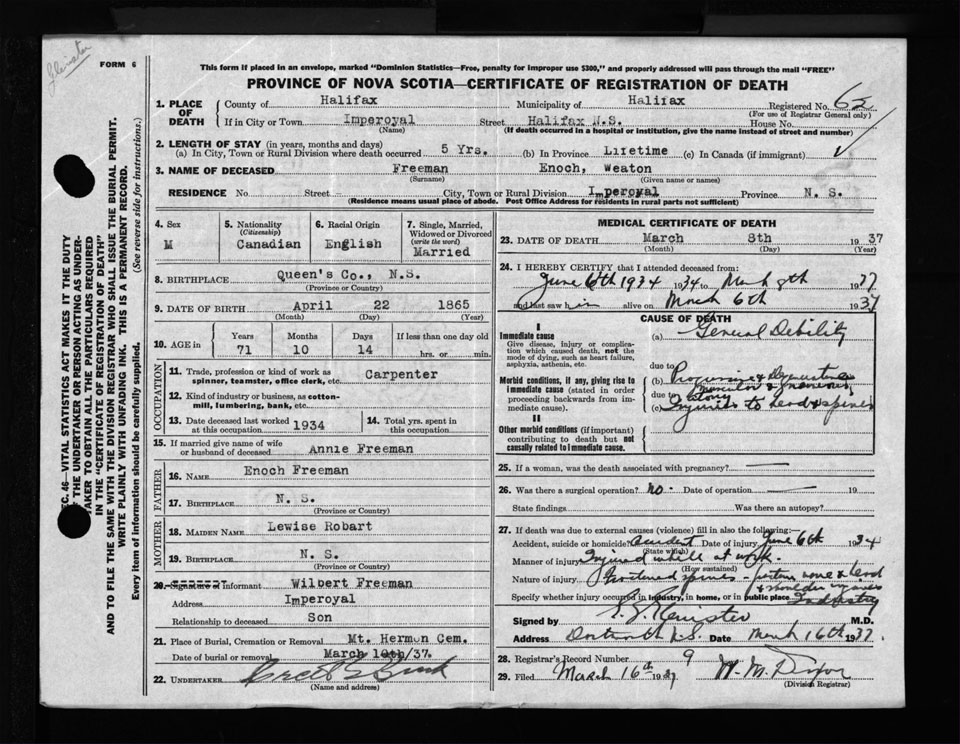 FORM 6
This form if placed in an envelope, marked "Dominion Statistics—Free, penalty for improper use $300," and properly addressed will pass through the mail "FREE"
PROVINCE OF NOVA SCOTIA—CERTIFICATE OF REGISTRATION OF DEATH
1. PLACE OF DEATH
County of Halifax Municipality of Halifax Registered No. 62
(For use of Registrar General only)
If in City or Town Imperoyal Street Halifax N.S. House No.
(Name) (If death occurred in a hospital or institution, give the name instead of street and number)
2. LENGTH OF STAY (in years, months and days)
(a) In City, Town or Rural Division where death occurred 5 Yrs. (b) In Province Lifetime (c) In Canada (if immigrant)
3. NAME OF DECEASED Freeman Enoch, Weaton
(Surname) (Given name or names)
RESIDENCE No. Street City, Town or Rural Division Imperoyal Province N. S.
(Residence means usual place of abode. Post Office Address for residents in rural parts not sufficient)
4. Sex
M
5. Nationality
(Citizenship)
Canadian
6. Racial Origin
English
7. Single, Married, Widowed or Divorced
(write the word)
Married
8. BIRTHPLACE Queen's Co., N.S.
(Province or Country)
9. DATE OF BIRTH April 22 1865
(Month) (Day) (Year)
10. AGE in
Years Months Days If less than one day old
71 10 14 hrs. or min.
OCCUPATION
11. Trade, profession or kind of work as spinner, teamster, office clerk, etc. Carpenter
12. Kind of industry or business, as cotton-mill, lumbering, bank, etc.
13. Date deceased last worked at this occupation 1934
14. Total yrs. spent in this occupation
15. If married give name of wife or husband of deceased Annie Freeman
FATHER
16. NAME Enoch Freeman
17. BIRTHPLACE N. S.
(Province or Country)
MOTHER
18. MAIDEN NAME Lewise Robart
19. BIRTHPLACE N. S.
(Province or Country)
20. Signature of Informant Wilbert Freeman
Address Imperoyal
Relationship to deceased Son
21. Place of Burial, Cremation or Removal Mt. Hermon Cem.
Date of burial or removal March 10th/37.
22. UNDERTAKER
(Name and address)
MEDICAL CERTIFICATE OF DEATH
23. DATE OF DEATH March 8th 1937
(Month) (Day) (Year)
24. I HEREBY CERTIFY that I attended deceased from:
June 6th 1934 1934 to March 8th 1937
and last saw him alive on March 6th 1937
CAUSE OF DEATH
I
Immediate cause
Give disease, injury or complication which caused death, not the mode of dying, such as heart failure, asphyxia, asthenia, etc.
(a) General Debility
due to
Morbid conditions, if any, giving rise to immediate cause (stated in order proceeding backwards from immediate cause).
(b)
due to
(c) Injuries to head & spine
II
Other morbid conditions (if important) contributing to death but not causally related to immediate cause.
25. If a woman, was the death associated with pregnancy?
26. Was there a surgical operation? No. Date of operation 19
State findings Was there an autopsy?
27. If death was due to external causes (violence) fill in also the following:
Accident, suicide or homicide? Accident Date of injury June 6th 1934
(State which)
Manner of injury Injured while at work.
(How sustained)
Nature of injury Fractured spine
Specify whether injury occurred in industry, in home, or in public place Industry
Signed by M.D.
Address Dartmouth N.S. Date March 16th 1937.
28. Registrar's Record Number 9
29. Filed March 16th 1937 W. M. Dixon
(Division Registrar)
SEC. 46—VITAL STATISTICS ACT MAKES IT THE DUTY OF THE UNDERTAKER OR PERSON ACTING AS UNDERTAKER TO OBTAIN ALL THE PARTICULARS REQUIRED IN THE "CERTIFICATE OF REGISTRATION OF DEATH" AND TO FILE THE SAME WITH THE DIVISION REGISTRAR WHO SHALL ISSUE THE BURIAL PERMIT.
WRITE PLAINLY WITH UNFADING INK. THIS IS A PERMANENT RECORD.
Every item of information should be carefully supplied. (See reverse side for instructions.)